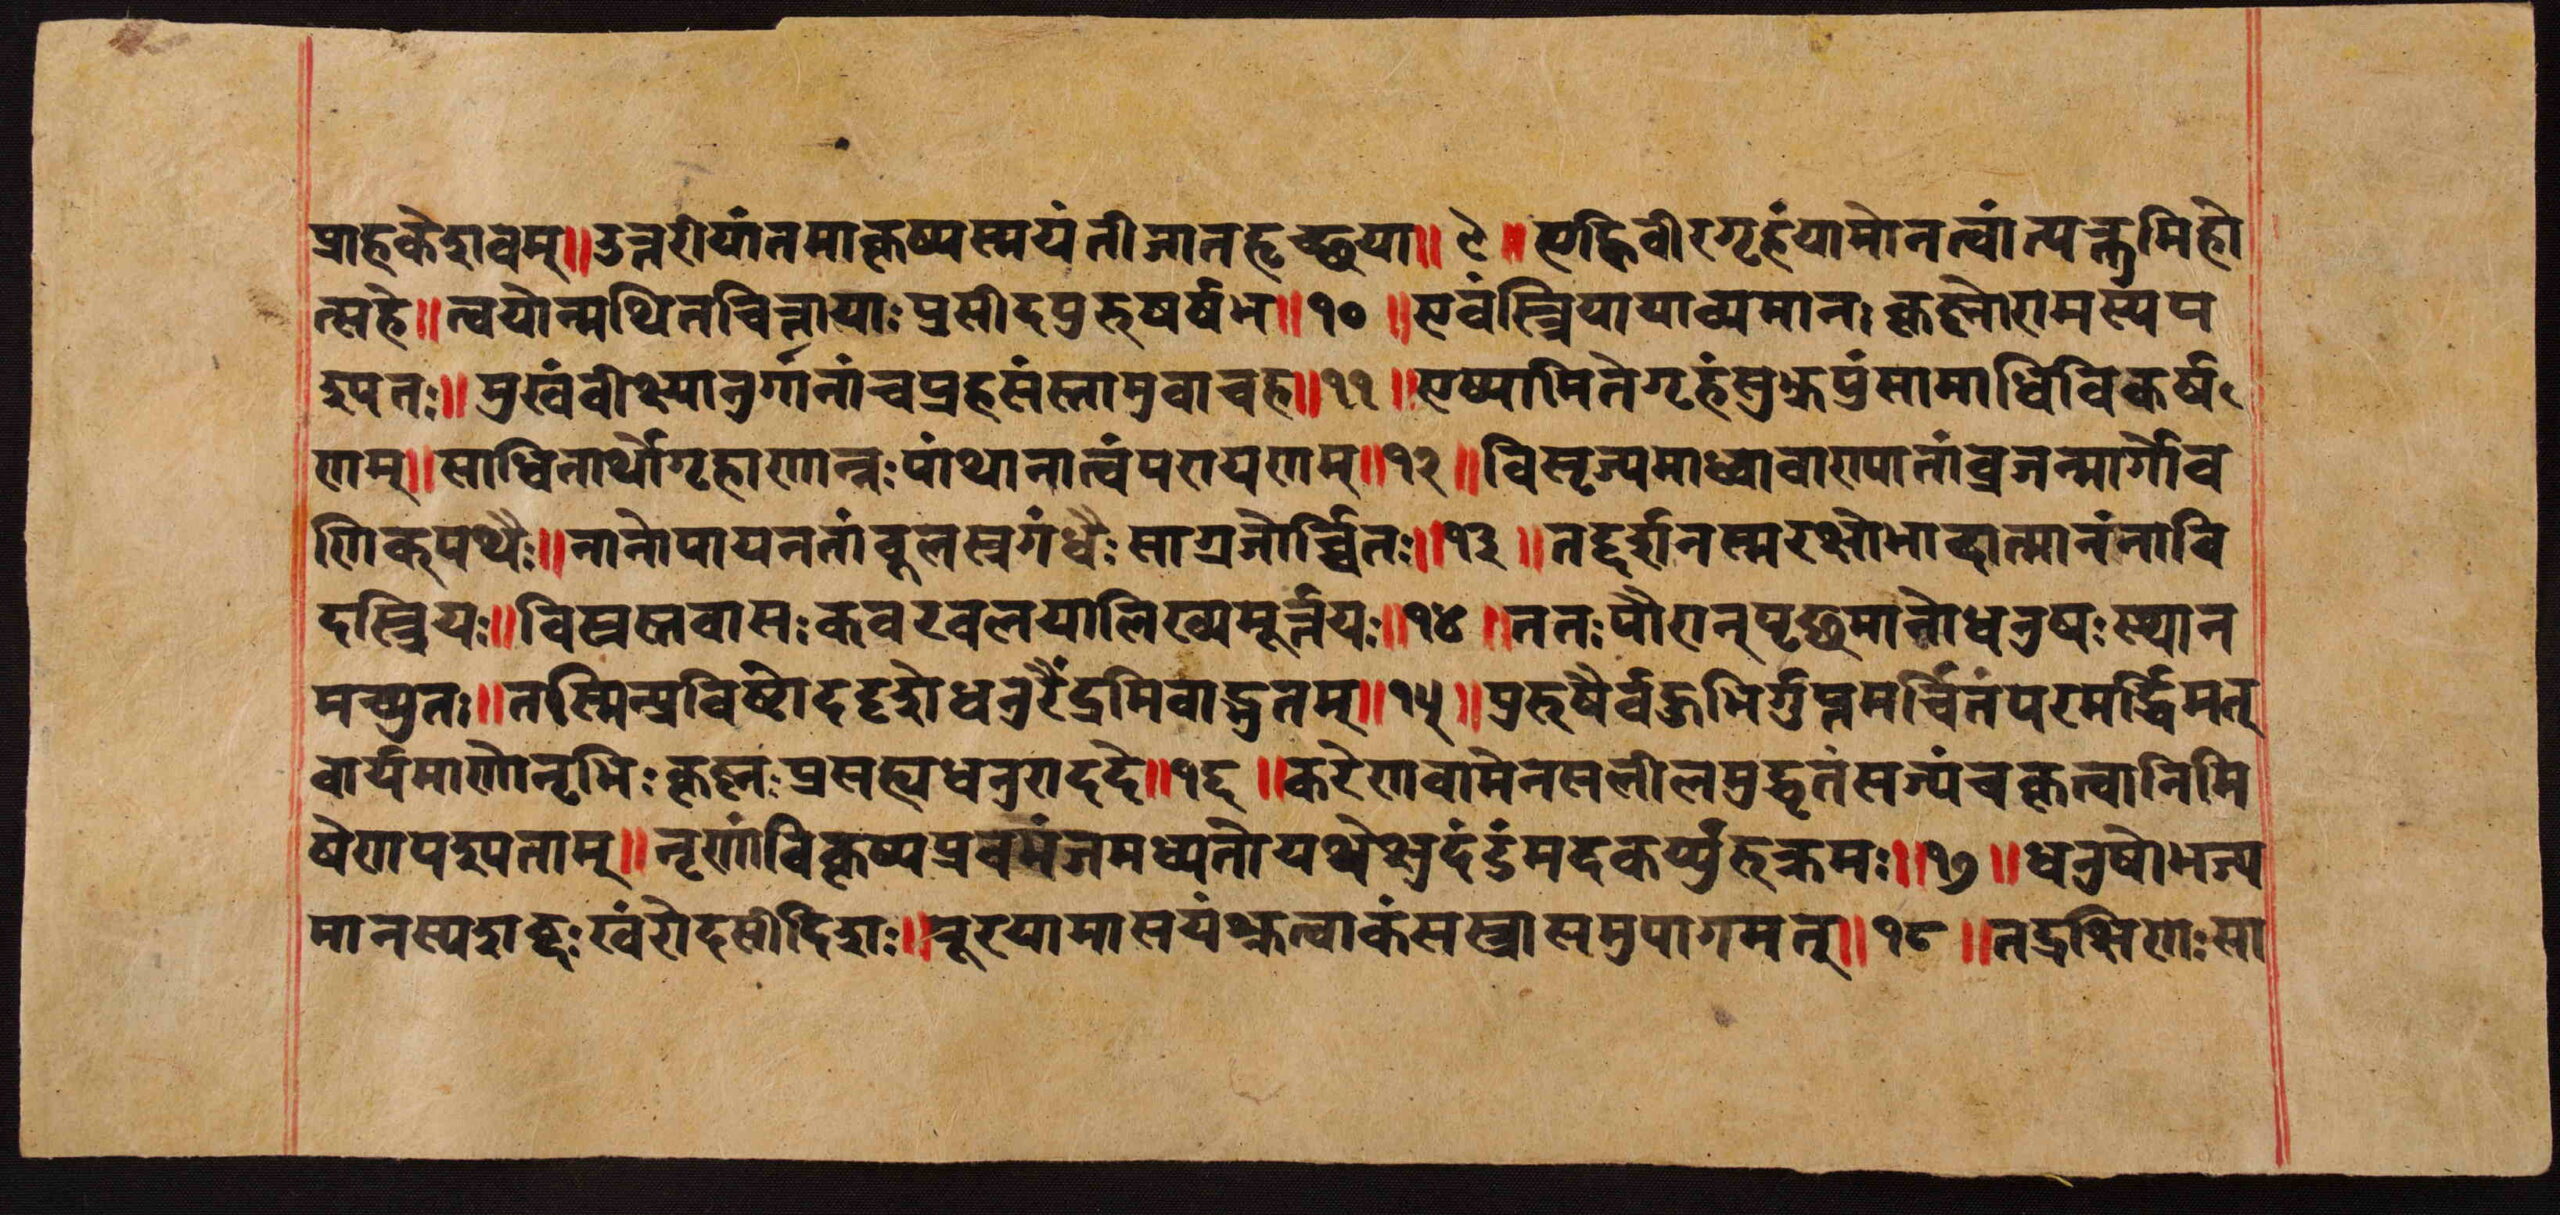 प्राहकेशवम्॥उत्तरीयांतमाकृष्यस्मयंतीजातहृच्छया॥९॥एहिवीरगृहंयामोनत्वांत्यक्तुमिहो
त्सहे॥त्वयोन्मथितचित्तायाःप्रसीदपुरुषर्षभ॥१०॥एवंस्त्रियायाच्यमानःकृष्णोरामस्यप
श्यतः॥मुखंवीक्ष्यानुगानांचप्रहसंस्तामुवाचह॥११॥एष्यामितेगृहंसुभ्रुपुंसामाधिविकर्ष
णम्॥साधितार्थोगृहाणान्नःपांथानात्वंपरायणम्॥१२॥विसृज्यमाध्व्यावाण्यातांव्रजन्मार्गेव
णिक्पथैः॥नानोपायनतांबूलस्रगंधैःसाग्रजोर्च्चितः॥१३॥तद्दर्शनस्मरक्षोभादात्मानंनावि
दस्त्रियः॥विस्रस्तवासःकवरवलयालिख्यमूर्त्तयः॥१४॥ततःपौरान्पृछमानोधनुषःस्थान
मच्युतः॥तस्मिन्प्रविष्टोददृशेधनुरैंद्रमिवाद्भुतम्॥१५॥पुरुषैर्वहुभिर्गुप्तमर्च्चितंपरमर्द्धिमत्
वार्यमाणोनृभिःकृष्णःप्रसह्यधनुराददे॥१६॥करेणवामेनसलीलमुद्धृतंसज्यंचकृत्वानिमि
षेणपश्यताम्॥नृणांविकृष्यप्रबभंजमध्यतोयथेक्षुदंडंमदकर्य्युरुक्रमः॥१७॥धनुषोभज्य
मानस्यशब्दःखंरोदसीदिशः॥पूरयामासयंश्रुत्वाकंसस्त्रासमुपागमत्॥१८॥तद्रक्षिणःसा